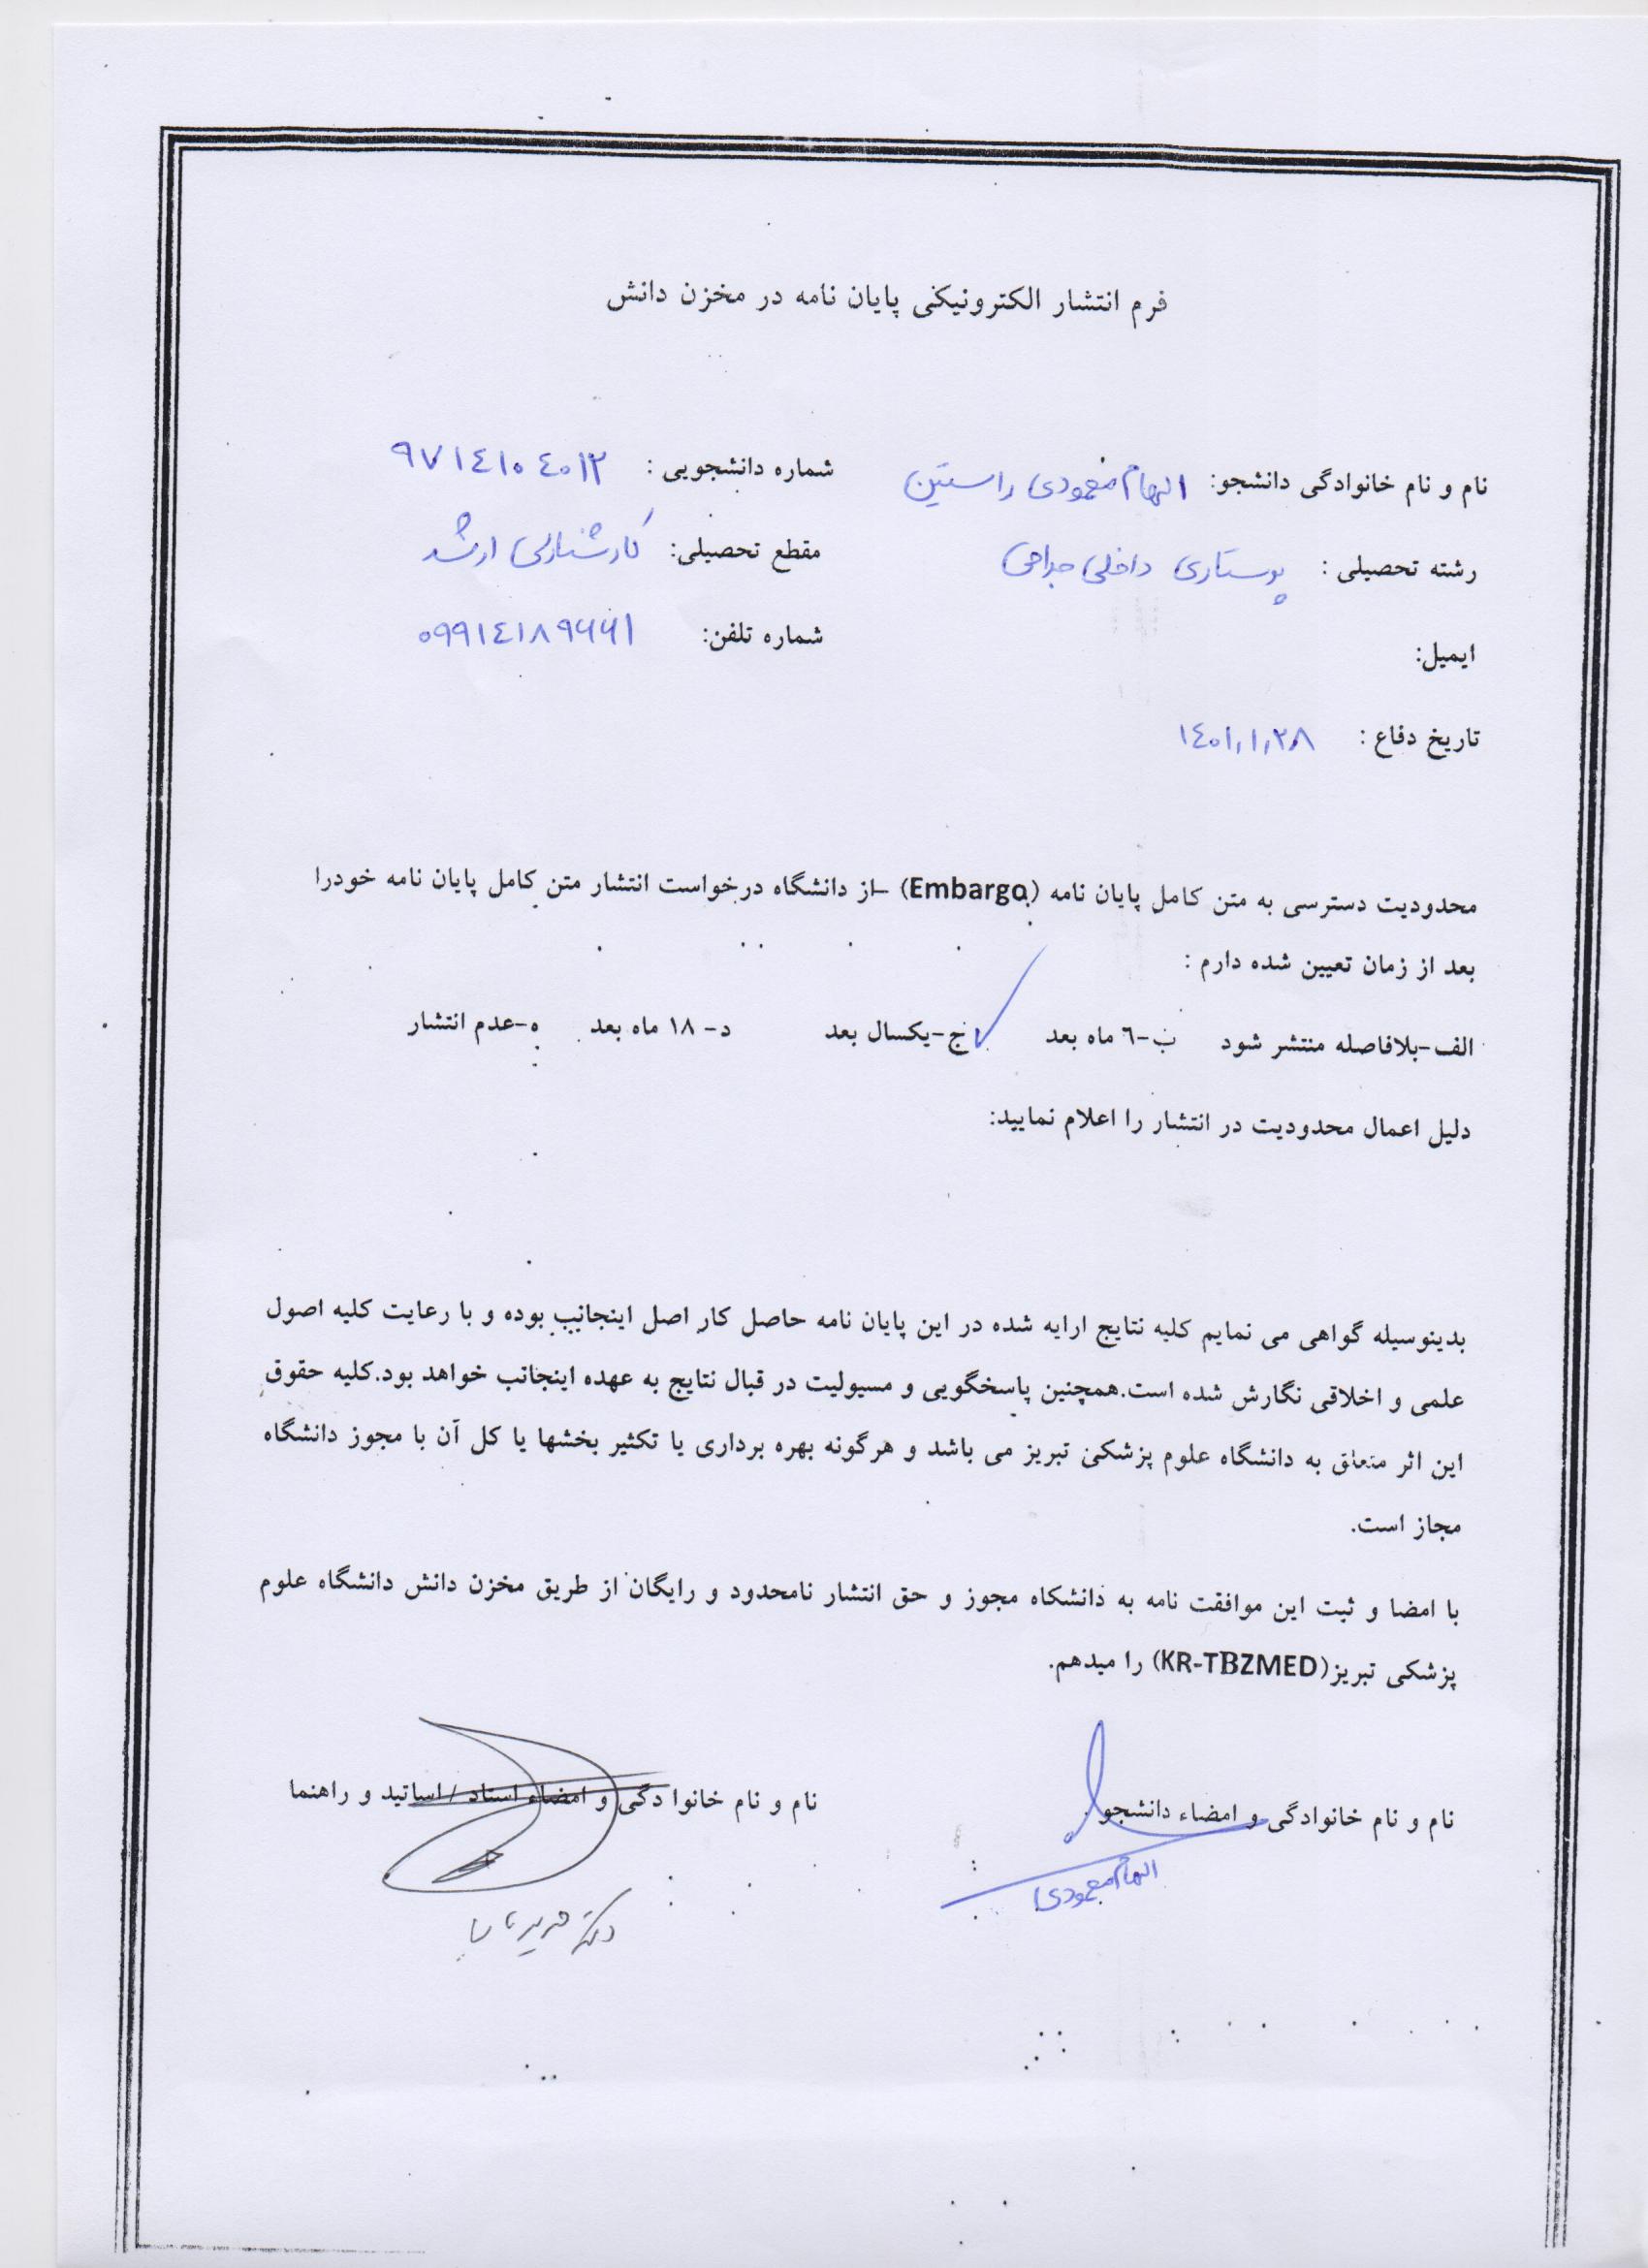 فرم انتشار الکترونیکی پایان نامه در مخزن دانش
نام و نام خانوادگی دانشجو: الهام محمودی راستین شماره دانشجویی : ۹۷۱٤۱۰٤۰۱۲
رشته تحصیلی : پرستاری داخلی جراحی مقطع تحصیلی: کارشناسی ارشد
ایمیل: شماره تلفن: ۰۹۹۱٤۱۸۹۶۶۱
تاریخ دفاع : ۱٤۰۱,۱,۲۸
محدودیت دسترسی به متن کامل پایان نامه (Embargo) –از دانشگاه درخواست انتشار متن کامل پایان نامه خودرا
بعد از زمان تعیین شده دارم :
الف-بلافاصله منتشر شود ب-٦ ماه بعد ✓ ج-یکسال بعد د- ۱۸ ماه بعد ه-عدم انتشار
دلیل اعمال محدودیت در انتشار را اعلام نمایید:
بدینوسیله گواهی می نمایم کلیه نتایج ارایه شده در این پایان نامه حاصل کار اصل اینجانب بوده و با رعایت کلیه اصول
علمی و اخلاقی نگارش شده است.همچنین پاسخگویی و مسیولیت در قبال نتایج به عهده اینجانب خواهد بود.کلیه حقوق
این اثر متعلق به دانشگاه علوم پزشکی تبریز می باشد و هرگونه بهره برداری یا تکثیر بخشها یا کل آن با مجوز دانشگاه
مجاز است.
با امضا و ثبت این موافقت نامه به دانشکاه مجوز و حق انتشار نامحدود و رایگان از طریق مخزن دانش دانشگاه علوم
پزشکی تبریز(KR-TBZMED) را میدهم.
نام و نام خانوادگی و امضاء دانشجو نام و نام خانوادگی و امضاء استاد /اساتید و راهنما
الهام محمودی دکتر